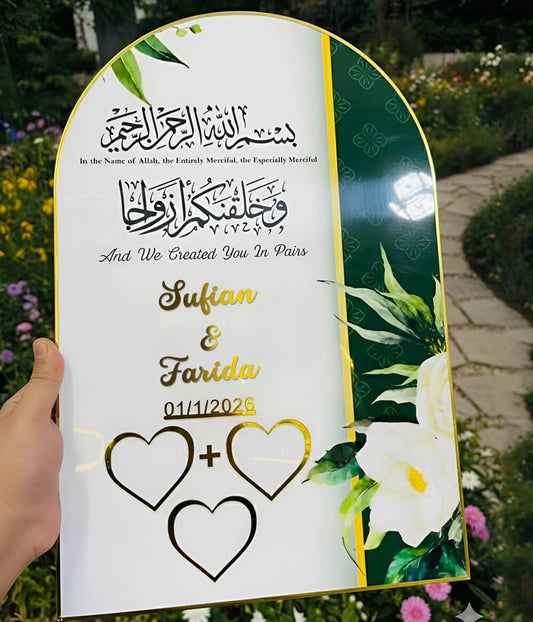 بسم الله الرحمن الرحيم
In the Name of Allah, the Entirely Merciful, the Especially Merciful
وخلقنكم أزواجا
And We Created You In Pairs
Sufian
&
Farida
01/1/2026
+